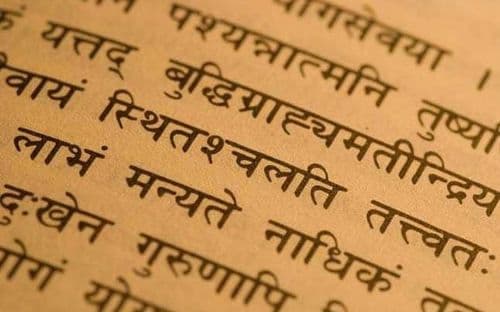 गसेवया ।
पश्यन्नात्मनि तुष्य
यत्तद् बुद्धिग्राह्यमतीन्द्रिय
वायं स्थितश्चलति तत्त्वतः
लाभं मन्यते नाधिकं त
दुःखेन गुरुणापि
योगं